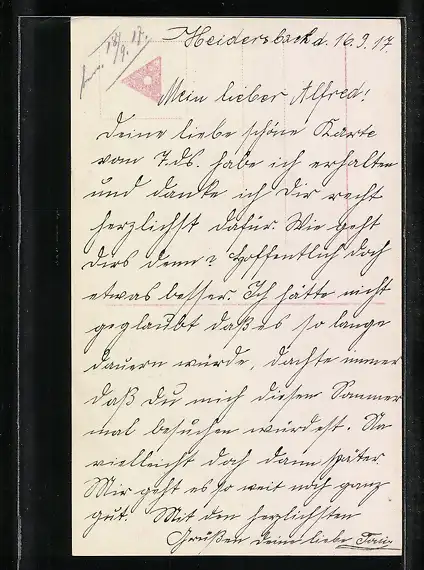 18/9. 17.
Heidersbach d. 16.9.17.
Mein lieber Alfred!
Deine liebe schöne Karte
vom 7. ds. habe ich erhalten
und danke ich Dir recht
herzlichst dafür. Wie geht
Dirs denn? Hoffentlich doch
etwas besser. Ich hätte nicht
geglaubt daß es so lange
dauern würde, dachte immer
daß Du mich diesen Sommer
mal besuchen würdest. Na
vielleicht doch dann später
Mir geht es so weit noch ganz
gut. Mit den herzlichsten
Grüßen Deine liebe